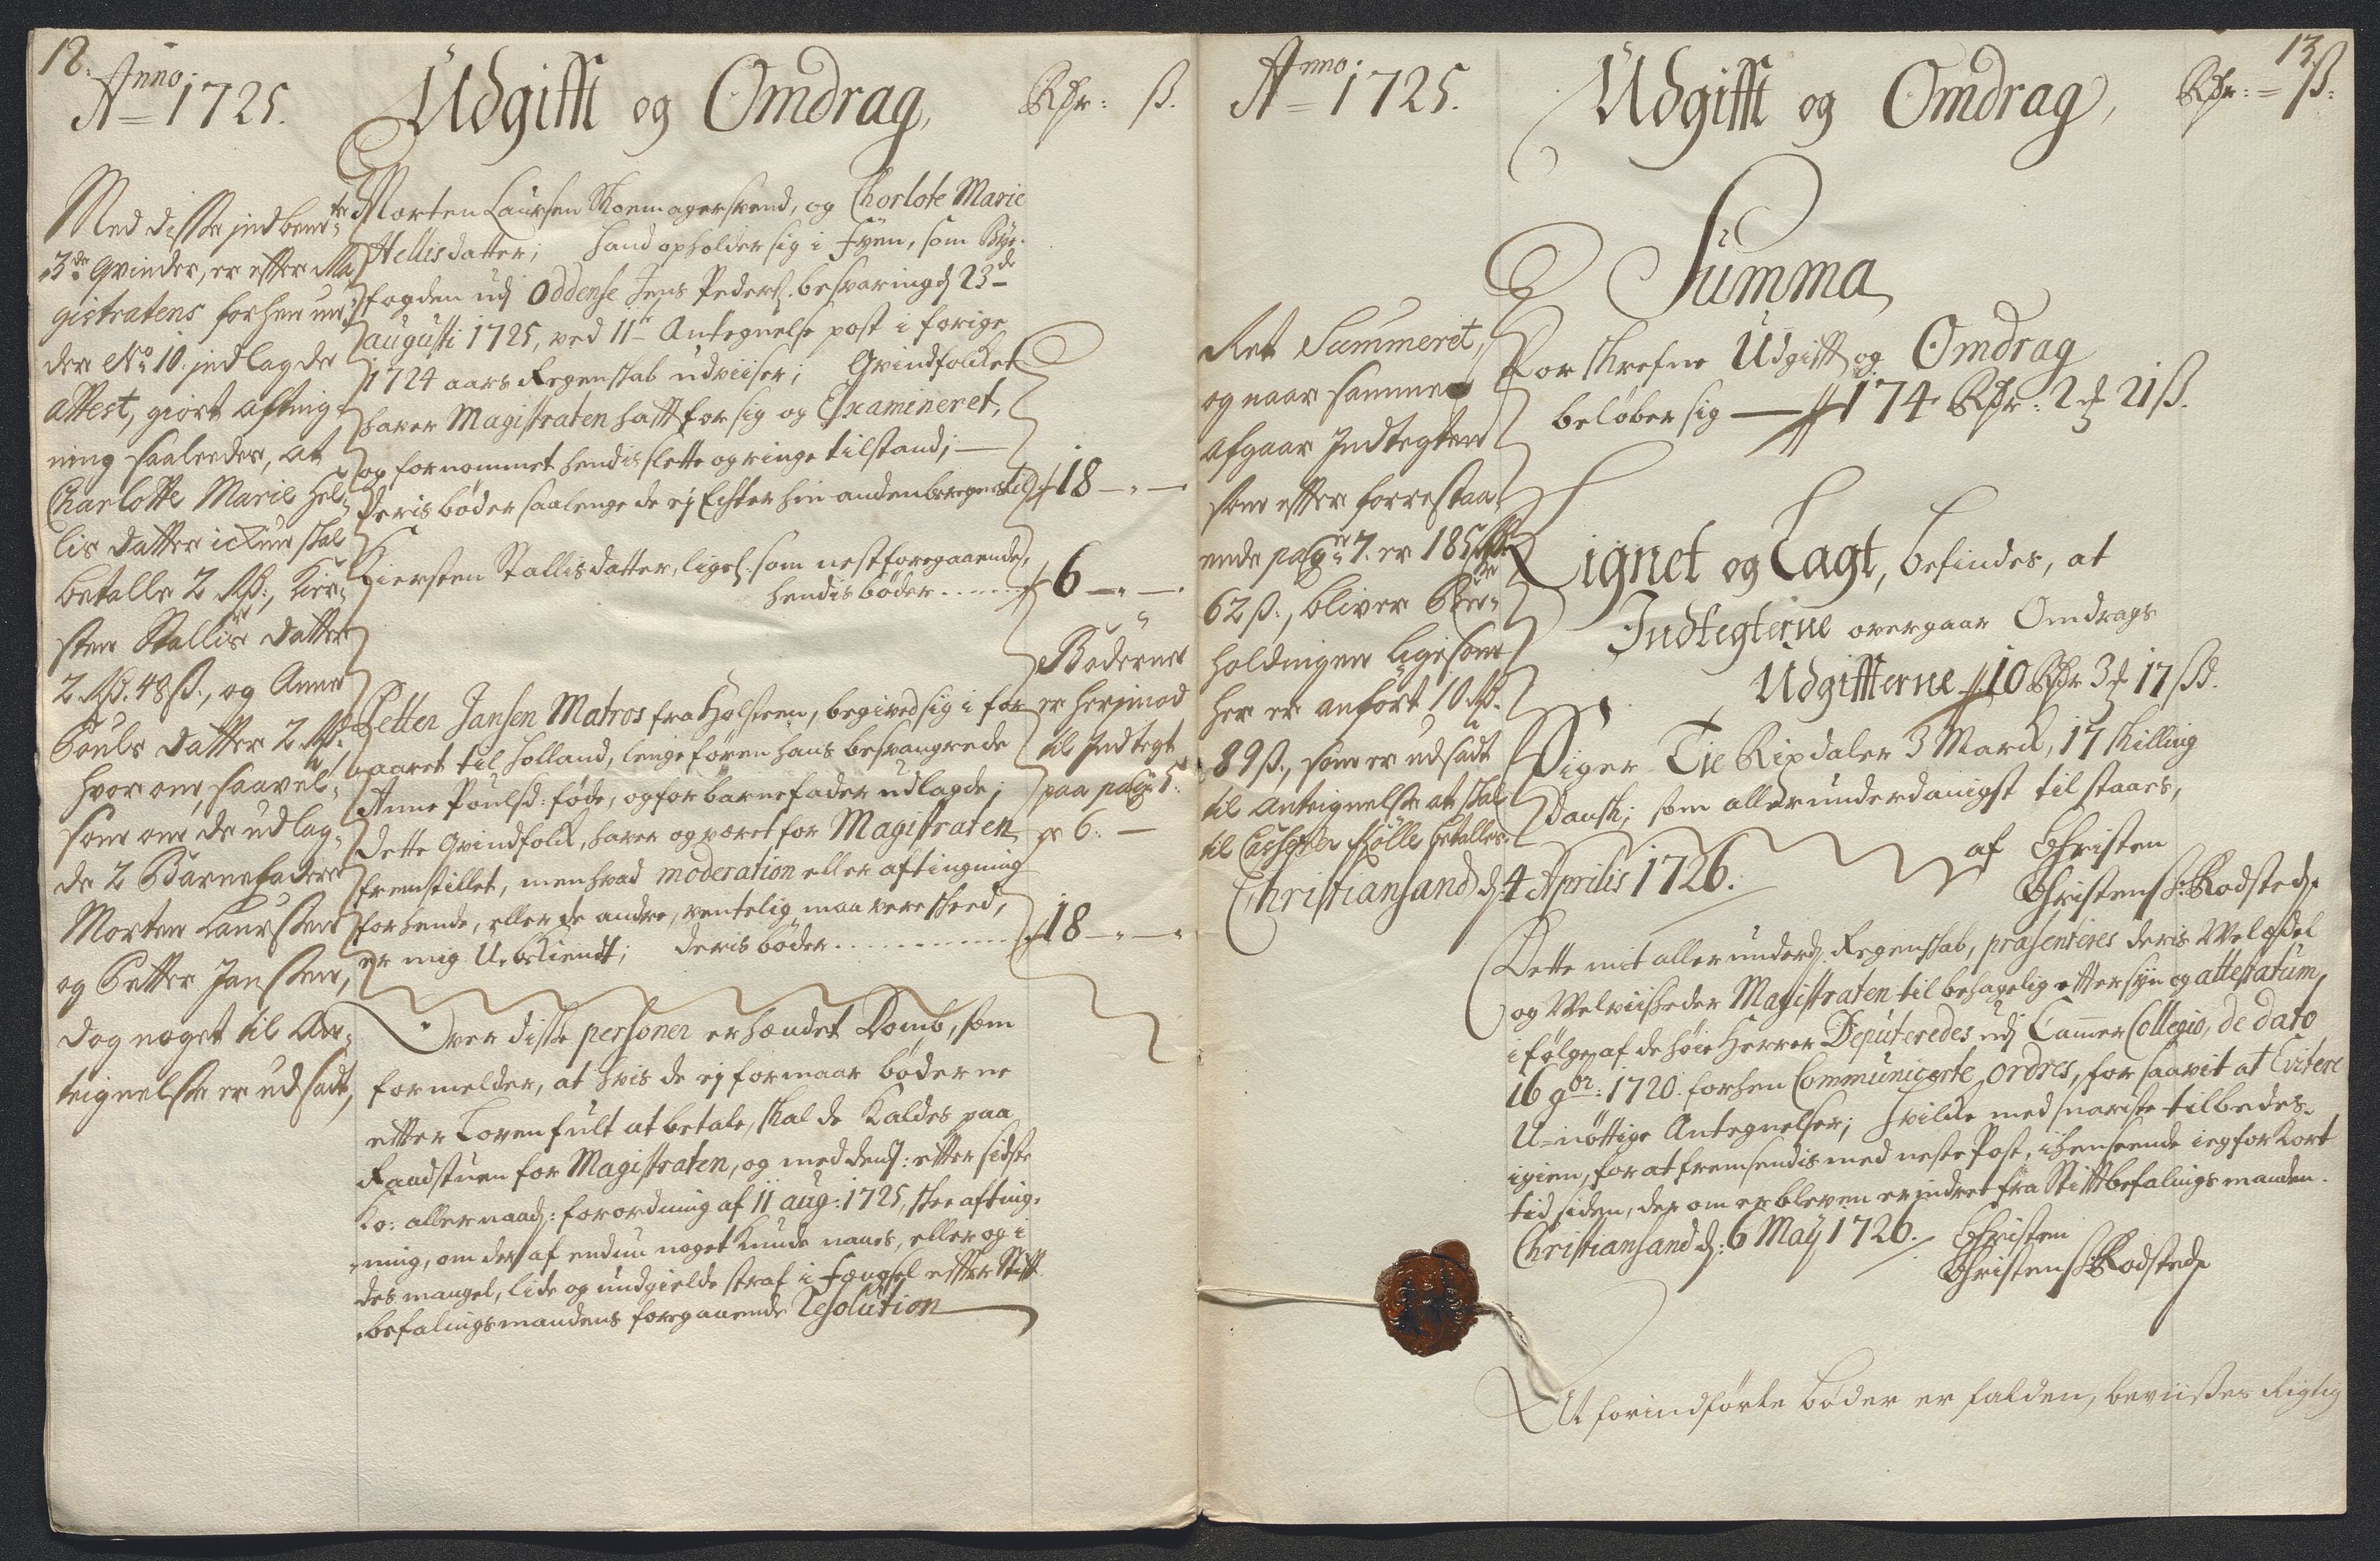 12.
Anno 1725. Udgifft og Omdrag, Rdr: ß.
Med disse jndbem:te
3de Qvinder, er effter Ma
gistratens forhen un,
der No 10. jndlagde
Attest, giort afting,
ning saaleedes, at
Charlotte Marie Hel,
lis datter ickun skal
betalle 2 Rd:, Kier,
sten Stallis datter
2 Rd. 48 ß., og Anne
Pouls datter 2 Rd.
hvorom, saavel,
som om de udlag,
de 2 Barnefadere
Morten Laursen
og Petter Jansen,
dog noget til An,
teignelse er udsadt,
Morten Laursen Skoemagersvend, og Chorlote Marie
Hellisdatter; hand opholder sig i Fyen, som Bye,
fogden udj Oddense Jens Peders: besvaring d 23de
augusti 1725, ved 11te Antegnelse post i forige
1724 aars Regenskab udviiser; Qvindfolcket
haver Magistraten hafft for sig og Examineret,
og fornommet hendis slette og ringe tilstand; —
deris bøder saalenge de ej Echter hin anden beregnes til 18 — " —
Kiersten Stallisdatter, ligel: som nestforegaaende,
hendis bøder ...... 6 — " —
Bøderne
er herjmod
til Indtegt
paa pag: 5
Petter Jansen Matros fra Holsteen, begived sig i for
aaret til Holland, lenge føren hans besvangrede
Anne Poulsd: føde, og for barnefader udlagde;
dette Qvindfolck, haver og veret for Magistraten
fremstillet, men hvad moderation eller aftingning
forhende, eller de andre, ventelig maa vere skeed,
er mig U-bekiendt; deris bøder ............ 18 — " —
Over disse personer er hændet Domb, som
formelder, at hvis de ej formaar bøderne
efter Loven fult at betale, skal de Kaldes paa
Raadstuen for Magistraten, og med dend: efter sidste
Ko: allernaad: forordning af 11 aug: 1725, skee afting,
ning, om der af endnu noget kunde naaes, eller og i
des mangel, lide og undgielde straf i Fengsel efter Stift
befalingsmandens foregaaende Resolution
13
Anno 1725. Udgifft og Omdrag, Rdr: ß:
Summa
Ret Summeret,
og naar samme
afgaar Indtegten
som efter forrestaa,
ende pag: 7. er 185 Rdr
62 ß., bliver Be,
holdningen ligesom
her er anført 10 Rd.
89 ß., som er udsadt
til Anteignelse at skal
til Cassen betalles.
Christiansand d: 4 Aprilis 1726.
Forskrefne Udgifft og Omdrag
beløber sig — 174 Rdr: 2 mk 21 ß.
Lignet og Lagt, befindes, at
Indtegterne overgaar Omdrags
Udgiffterne 10 Rdr 3 mk 17 ß d.
Siger Tie Rixdaler 3 Marck, 17 skilling
Dansk; som allerunderdanigst tilstaaes,
af Christen
Christens: Rodsted
Dette mit allerunderd: Regenskab, præsenteres deris Welædel
og Welviisheder Magistraten til behagelig effter syn og attestatum,
i følge af de høie Herrer Deputeredes udj Camer Collegio, de dato
16 9br: 1720. forhen Communicerte ordres, for saavit at Evitere
U-nøttige Antegnelser; hvilke med snariste tilbedes.
igien, for at fremsendis med neste Post, i henseende ieg for kort
tid siden, der om er bleven erindret fra Stifftbefalingsmanden.
Christiansand d: 6 May 1726. Christen
Christens: Rodsted
At forindførte bøder er falden, beviißes Rigtig